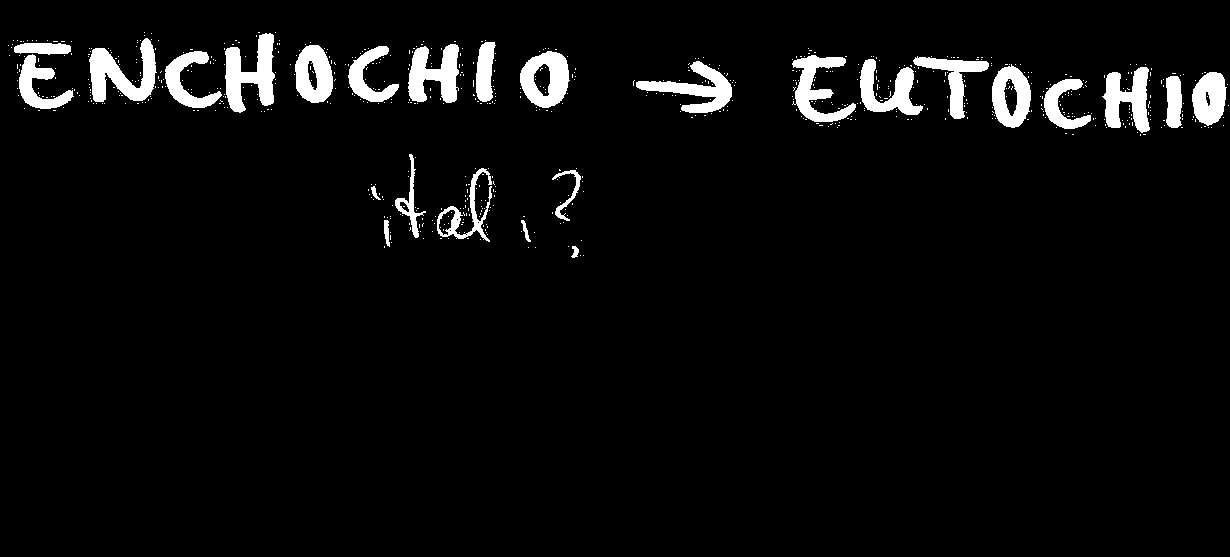 ENCHOCHIO → EUTOCHIO
ital.?